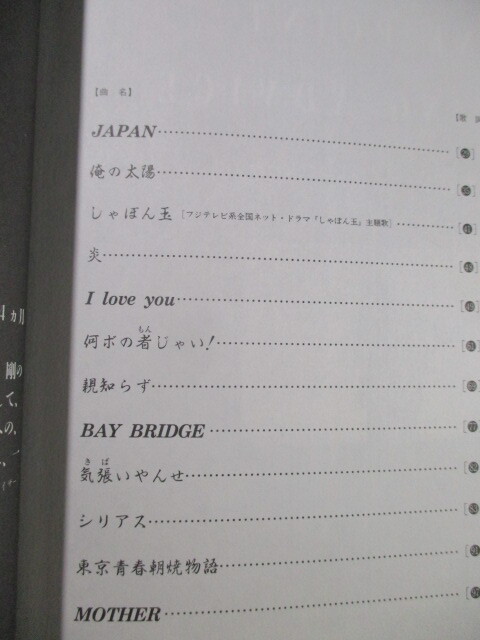 【曲 名】
【歌 詞
JAPAN
俺の太陽
しゃぼん玉 [フジテレビ系全国ネット・ドラマ『しゃぼん玉』主題歌]
炎
I love you
何ボの者じゃい!
もん
親知らず
BAY BRIDGE
気張いやんせ
きば
シリアス
東京青春朝焼物語
MOTHER
カ月
剛の
て、
の、